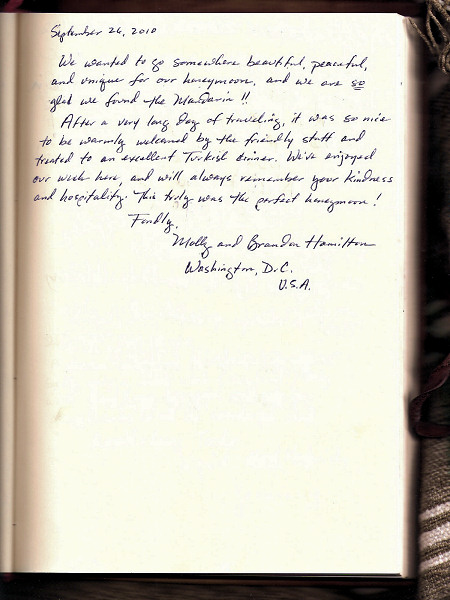 September 26, 2010
We wanted to go somewhere beautiful, peaceful,
and unique for our honeymoon, and we are so
glad we found the Mandarin!!
After a very long day of traveling, it was so nice
to be warmly welcomed by the friendly staff and
treated to an excellent Turkish dinner. We've enjoyed
our week here, and will always remember your kindness
and hospitality. This truly was the perfect honeymoon!
Fondly,
Molly and Brandon Hamilton
Washington, D.C.
U.S.A.